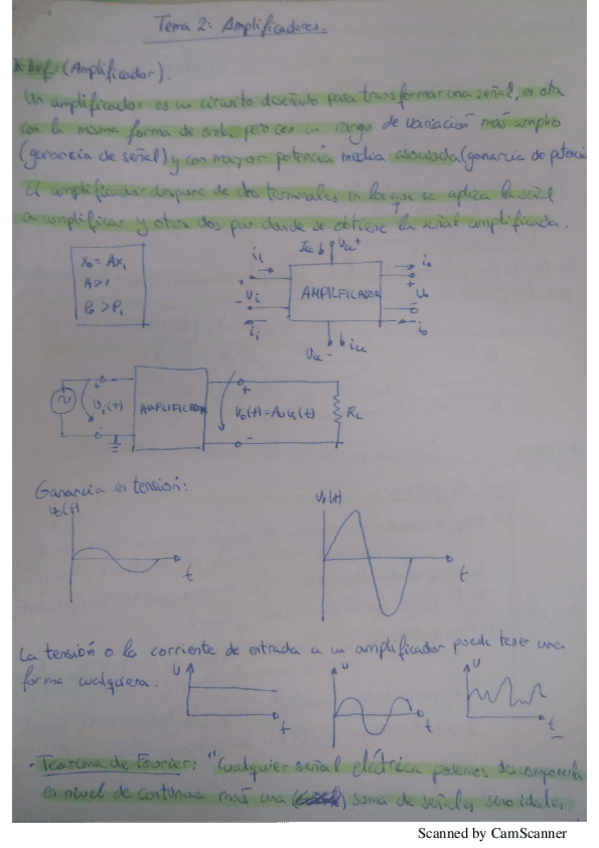 Tema 2: Amplificadores.
* Def: (Amplificador).
Un amplificador es un circuito diseñado para transformar una señal, en otra
con la misma forma de onda, pero con un rango de variación más amplio
(ganancia de señal) y con mayor potencia media asociada (ganancia de potencia
El amplificador dispone de dos terminales en los que se aplica la señal
a amplificar y otros dos por donde se obtiene la señal amplificada.
Xo = AXi
A>1
Po > Pi
ii
Icc
Vcc+
io
+
Vi
-
AMPLIFICADOR
+
Vo
-
ii
io
Vcc-
icc
Vi(t)
AMPLIFICADOR
+
Vo(t) = AvVi(t)
-
RL
Ganancia en tensión:
Vo(t)
t
t
La tensión o la corriente de entrada a un amplificador puede tener una
forma cualquiera.
U
t
U
t
U
t
- Teorema de Fourier: "Cualquier señal eléctrica podemos descomponerla
en nivel de continua más una suma de señales senoidales
Scanned by CamScanner